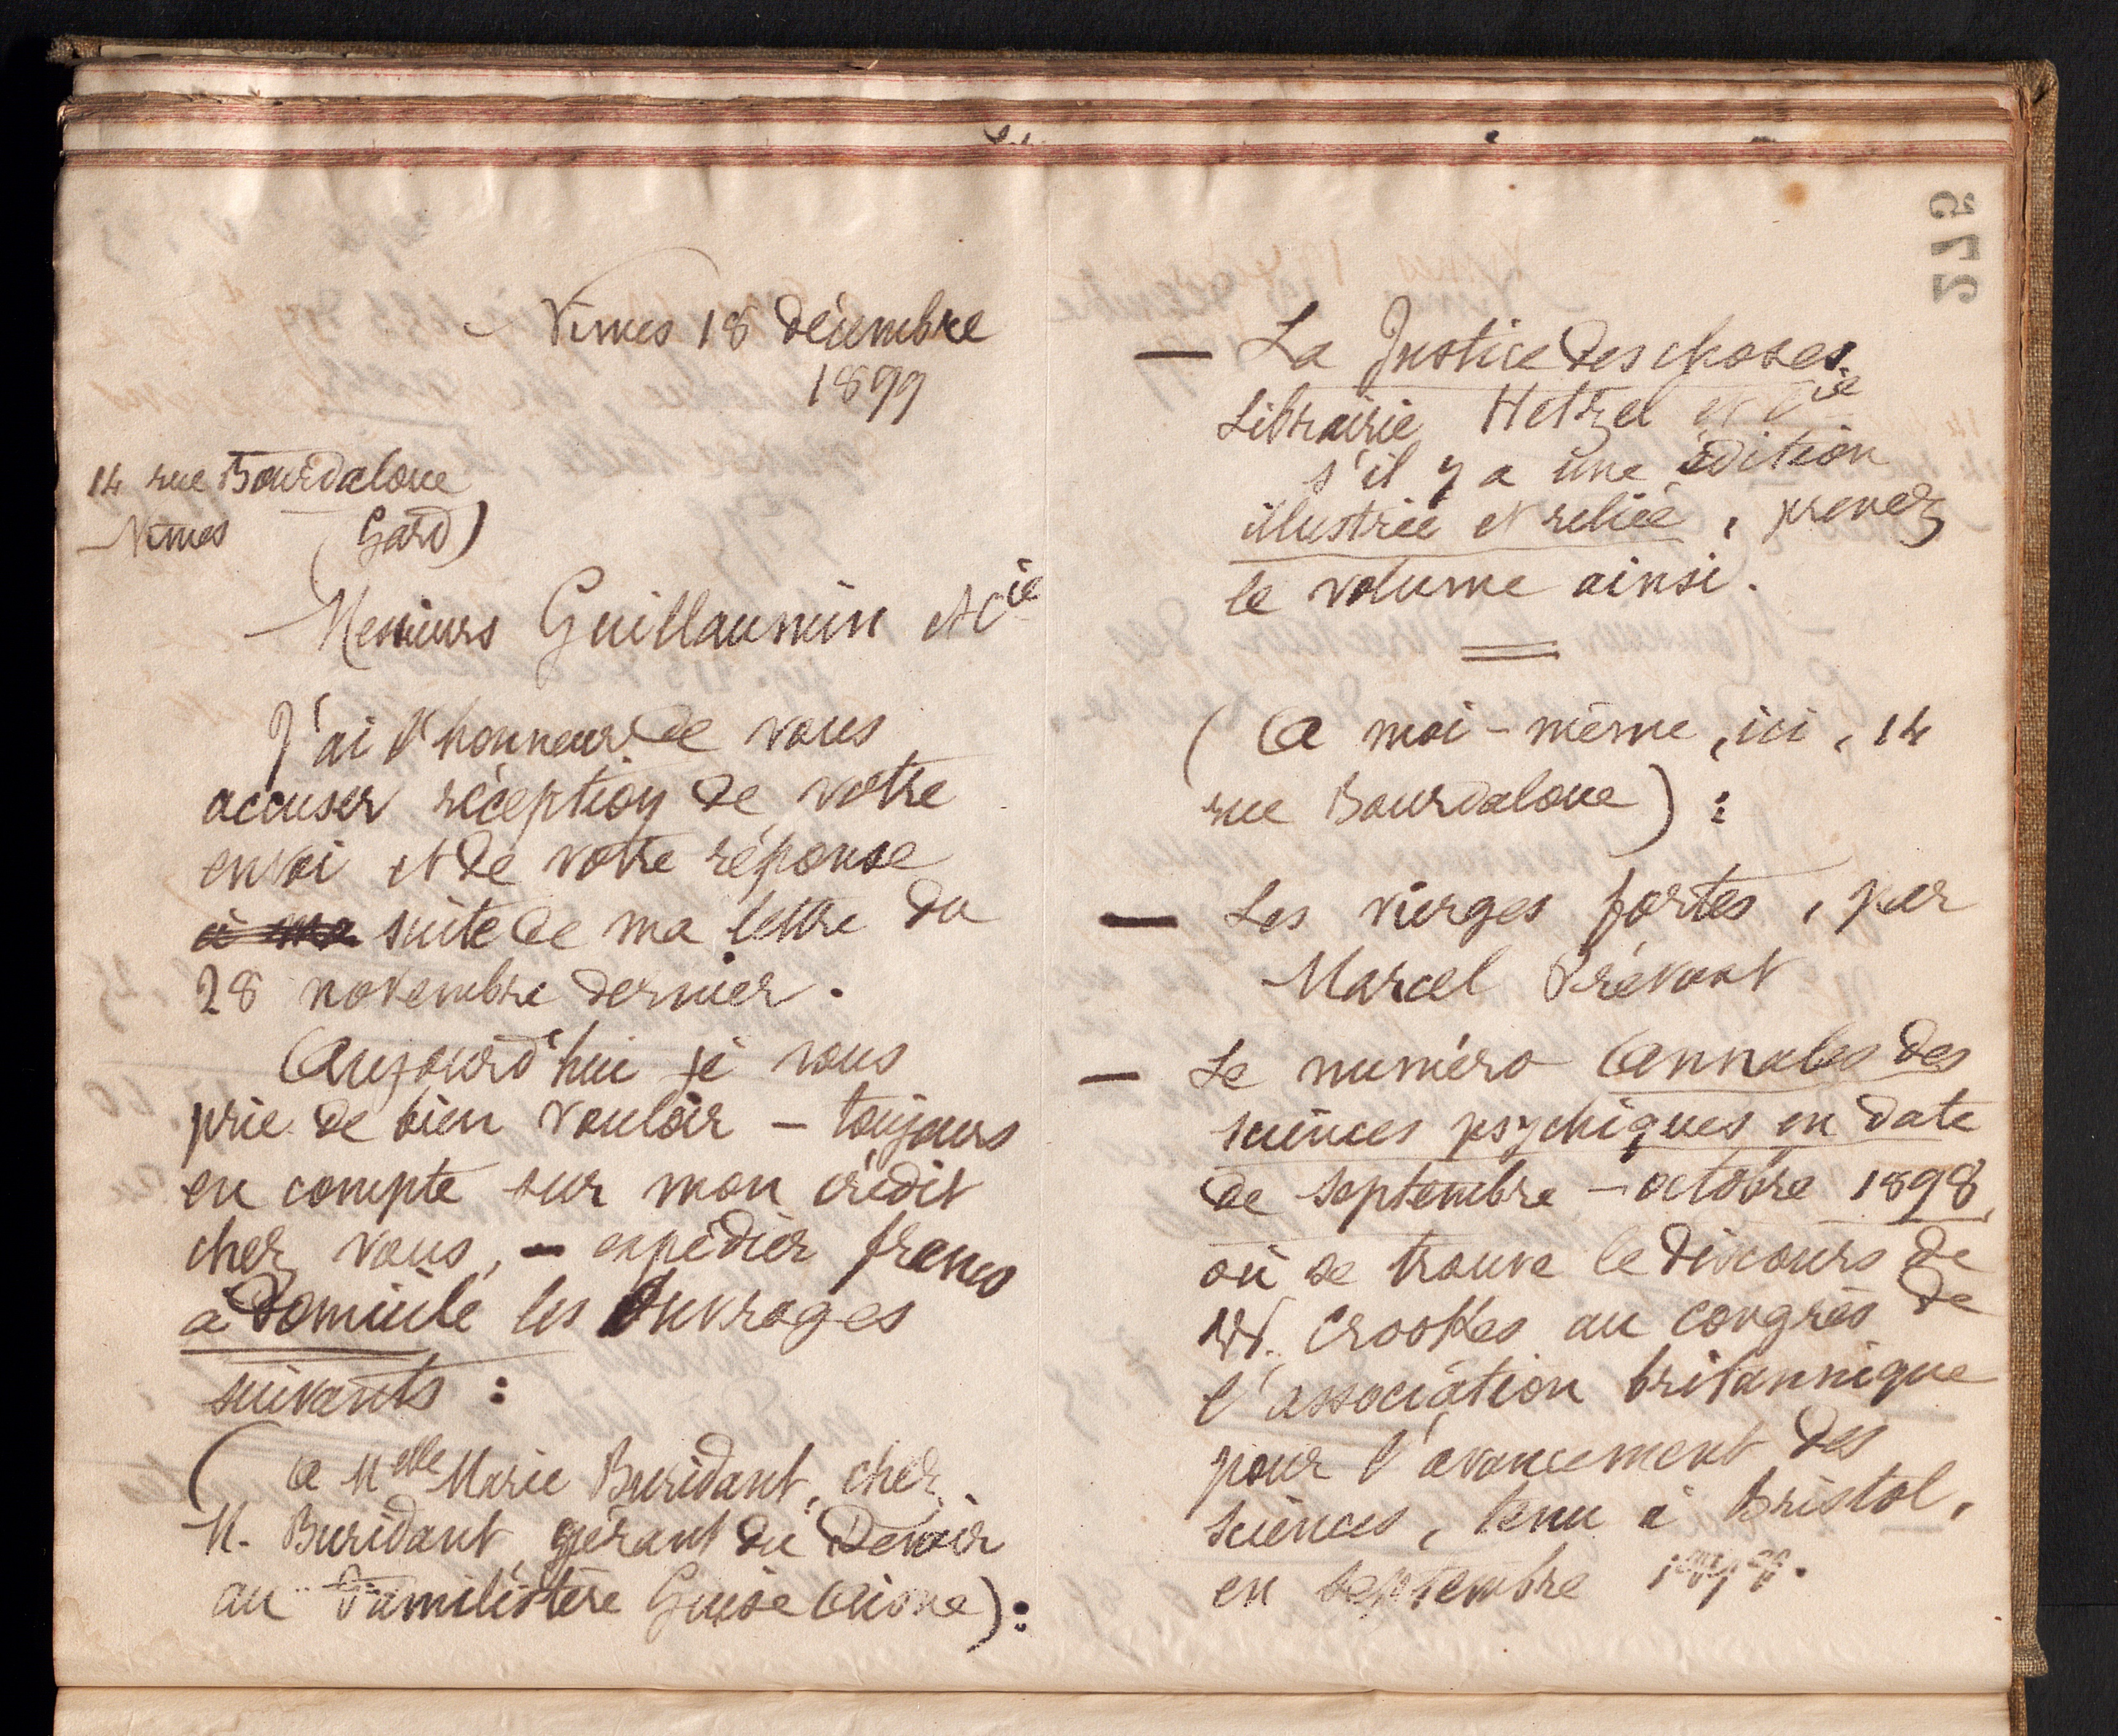 Nîmes 18 décembre
1899
14 rue Bourdaloue
Nîmes (Gard)
Messieurs Guillaumin et Cie
J'ai l'honneur de vous
accuser réception de votre
envoi et de votre réponse
à ma suite de ma lettre du
28 novembre dernier.
Aujourd'hui je vous
prie de bien vouloir – toujours
en compte sur mon crédit
chez vous, – expédier franco
à domicile les ouvrages
suivants :
(A Melle Marie Buridant, chez
M. Buridant, gérant du Devoir
au Familistère Guise Aisne) :
275
— La Justice des choses.
Librairie Hetzel et Cie
s'il y a une édition
illustrée et reliée, prenez
le volume ainsi.
(A moi-même, ici, 14
rue Bourdaloue) :
— Les vierges fortes, par
Marcel Prévost
— Le numéro Annales des
sciences psychiques en date
de septembre – octobre 1898,
où se trouve le discours de
W. Crookes au congrès de
l'association britannique
pour l'avancement des
sciences, tenu à Bristol,
en septembre